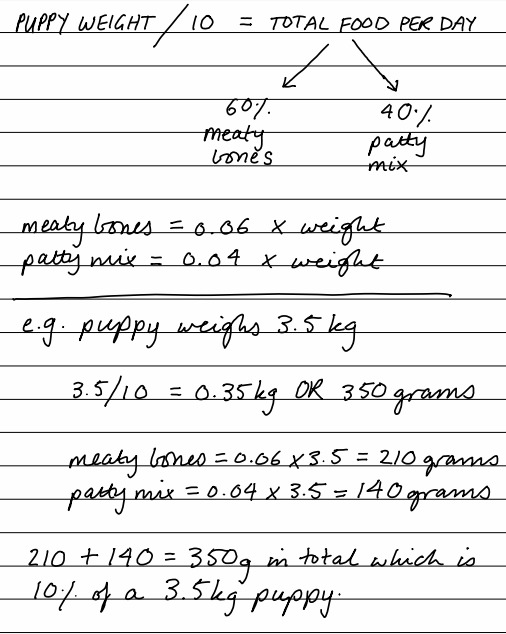 PUPPY WEIGHT / 10 = TOTAL FOOD PER DAY
60% 40%
meaty patty
bones mix
meaty bones = 0.06 x weight
patty mix = 0.04 x weight
e.g. puppy weighs 3.5 kg
3.5/10 = 0.35kg OR 350 grams
meaty bones = 0.06 x 3.5 = 210 grams
patty mix = 0.04 x 3.5 = 140 grams
210 + 140 = 350g in total which is
10% of a 3.5kg puppy.